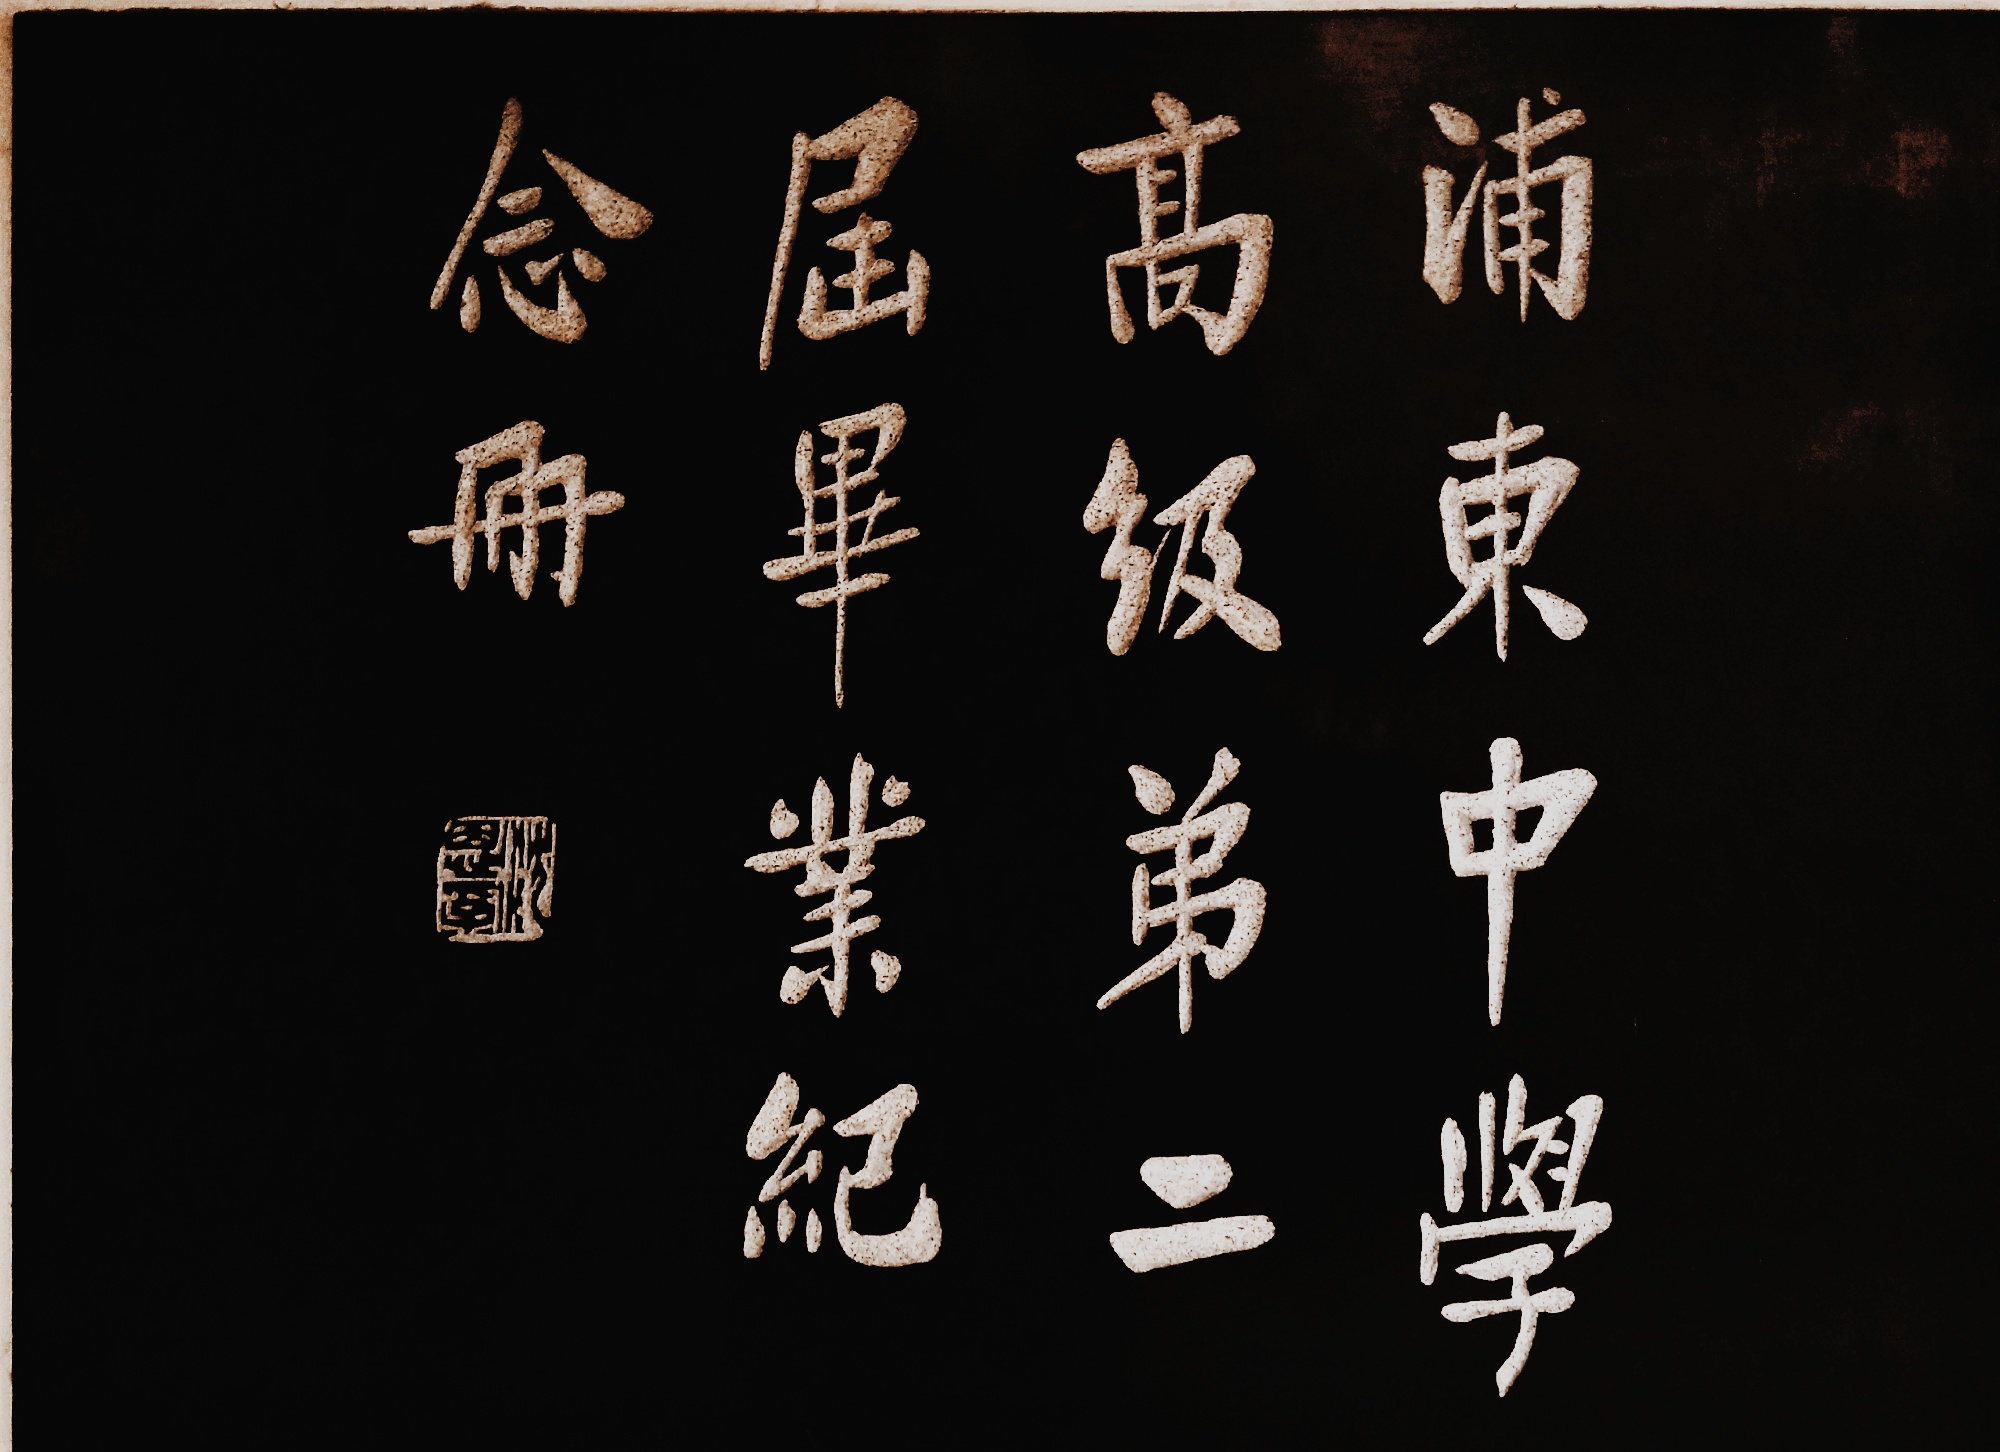 浦東中學
高級弟二
屆畢業紀
念冊